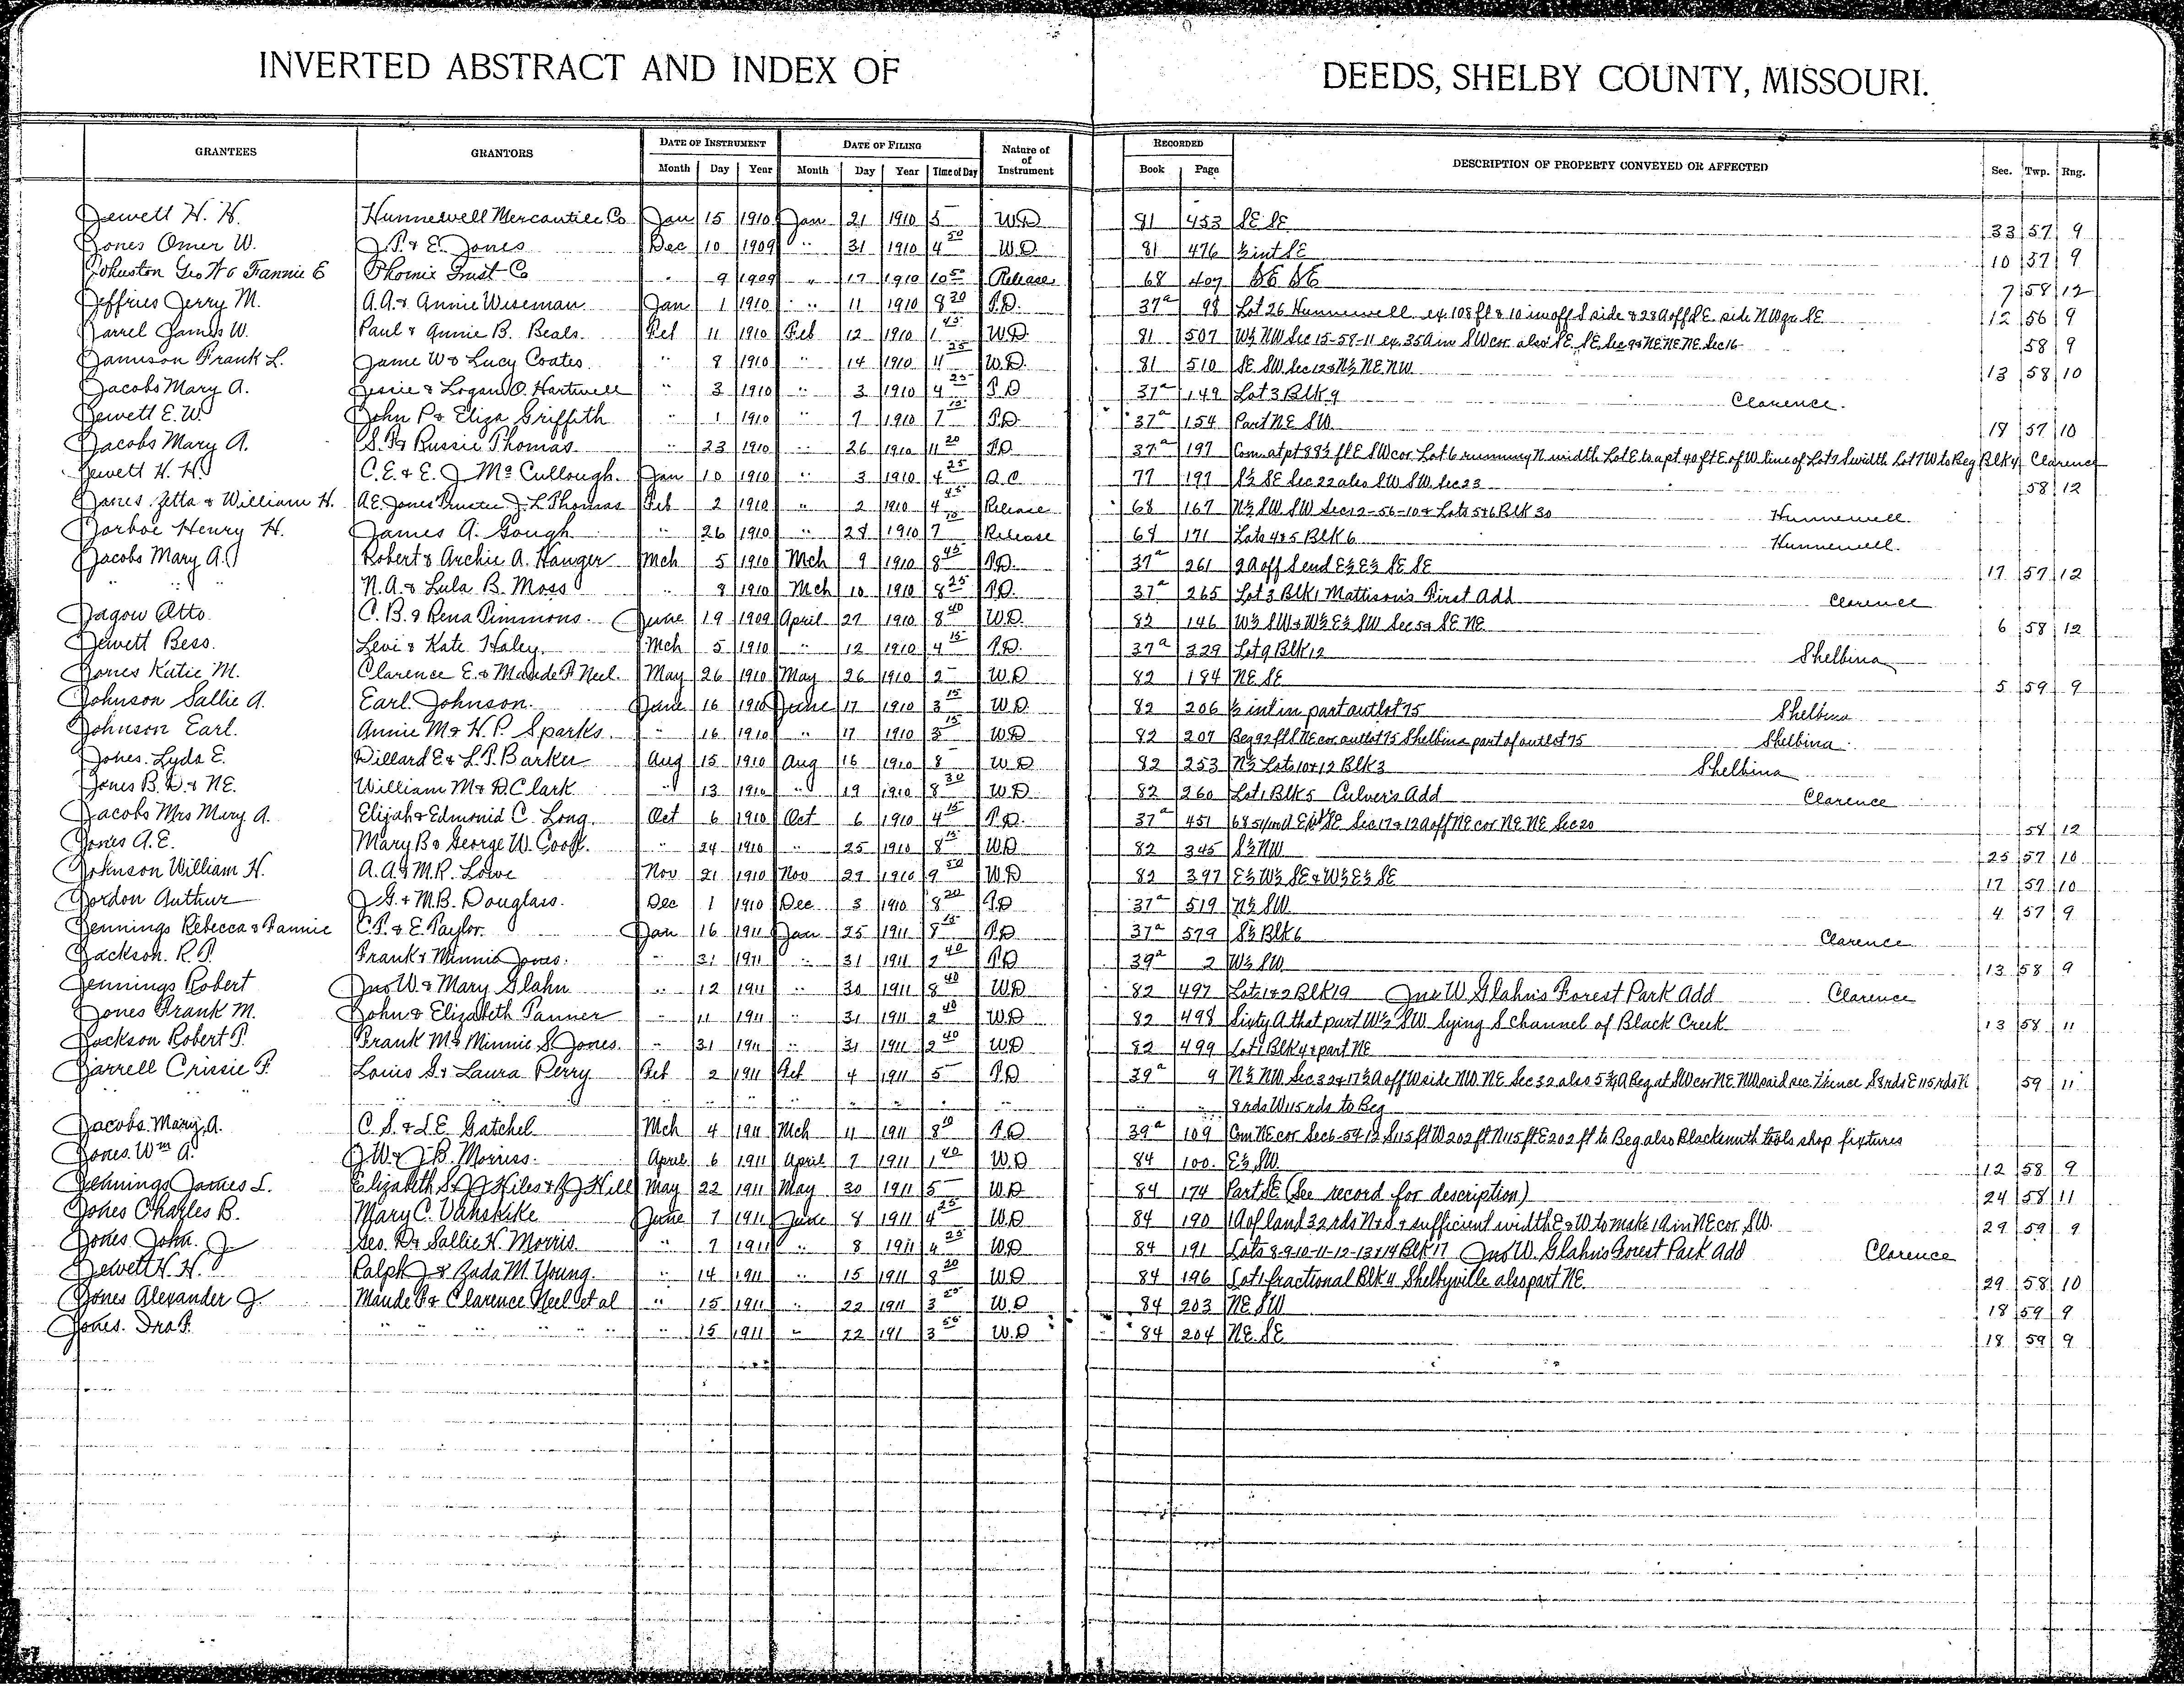 INVERTED ABSTRACT AND INDEX OF DEEDS, SHELBY COUNTY, MISSOURI.
GRANTEES GRANTORS DATE OF INSTRUMENT DATE OF FILING Nature of of Instrument RECORDED DESCRIPTION OF PROPERTY CONVEYED OR AFFECTED Sec. Twp. Rng.
Month Day Year Month Day Year Time of Day Book Page
Jewett H. H. Hunnewell Mercantile Co Jan 15 1910 Jan 21 1910 3 W.D 81 453 SE SE 33 57 9
Jones Omer W. J.P. & E. Jones Dec 10 1909 " 31 1910 4 50 W.D. 81 476 ½ int SE 10 57 9
Johnston Geo W & Fannie E Phoenix Trust Co " 9 1909 " 17 1910 10 50 Release 68 407 SE SE 7 58 12
Jeffries Jerry M. A.A. & Annie Wiseman Jan 1 1910 " 11 1910 8 20 T.D. 37a 98 Lot 26 Hunnewell ex 108 ft & 10 in off S side & 28A off SE side NW qr SE 12 56 9
Jarrel James W. Paul & Annie B. Beals Feb 11 1910 Feb 12 1910 1 45 W.D 81 507 W½ NW Sec 15-58-11 ex 35A in SW cor also SE SE Sec 9 & NE NE NE Sec 16 58 9
Jamison Frank L. Jame W & Lucy Coates " 8 1910 " 14 1910 11 25 W.D. 81 510 SE SW Sec 12 & N½ NE NW 13 58 10
Jacobs Mary A. Jessie & Logan O. Hartwell " 3 1910 " 3 1910 4 25 T.D 37a 149 Lot 3 Blk 9 Clarence.
Jewett E.W. John P & Eliza Griffith " 1 1910 " 7 1910 7 15 T.D. 37a 154 Part NE SW 18 57 10
Jacobs Mary A. S.F. & Russie Thomas " 23 1910 " 26 1910 11 20 T.D. 37a 197 Com at pt 88½ ft E SW cor Lot 6 running N width Lot E to a pt 40 ft E of W line of Lot 7 S width Lot 7 W to Beg Blk 4 Clarence
Jewett H. H. C.E. & E. J McCullough. Jan 10 1910 " 3 1910 4 25 Q.C 77 197 S½ SE Sec 22 also SW SW Sec 23 58 12
Janes Zetta & William H. A.E. Jones Trustee J.L Thomas Feb 2 1910 " 2 1910 4 45 Release 68 167 N½ SW SW Sec 12-56-10 & Lots 5&6 Blk 30 Hunnewell
Jarboe Henry H. James A. Gough " 26 1910 " 28 1910 7 10 Release 68 171 Lots 4&5 Blk 6 Hunnewell.
Jacobs Mary A. Robert & Archie A. Hanger Mch 5 1910 Mch 9 1910 8 45 T.D. 37a 261 2A off S end E½ E½ SE SE 17 57 12
" " " N.A. & Lula B. Moss " 8 1910 Mch 10 1910 8 25 T.D. 37a 265 Lot 3 Blk 1 Mattison's First Add Clarence
Jagow Otto. C.B. & Rena Timmons. June 19 1909 April 27 1910 8 40 W.D. 82 146 W½ SW & W½ E½ SW Sec 5 & SE NE 6 58 12
Jewett Bess. Levi & Kate Haley. Mch 5 1910 " 12 1910 4 15 T.D. 37a 329 Lot 9 Blk 12 Shelbina
Jones Katie M. Clarence E. & Maude P Neel. May 26 1910 May 26 1910 2 W.D 82 184 NE SE 5 59 9
Johnson Sallie A. Earl Johnson June 16 1910 June 17 1910 3 15 W.D. 82 206 ½ int in part outlot 75 Shelbina
Johnson Earl. Annie M & H.P. Sparks " 16 1910 " 17 1910 3 15 W.D 82 207 Beg 92 ft S NE cor outlot 75 Shelbina part of outlot 75 Shelbina
Jones Lyda E. Willard E & L.T. Barker Aug 15 1910 Aug 16 1910 8 W.D 82 253 N½ Lots 10&12 Blk 3 Shelbina
Jones B.D. & N.E. William M & D Clark " 13 1910 " 19 1910 8 30 W.D 82 260 Lot 1 Blk 5 Culver's Add Clarence
Jacobs Mrs Mary A. Elijah & Edmonid C. Long. Oct 6 1910 Oct 6 1910 4 15 T.D. 37a 451 SE Sec 17 & 12A off NE cor NE NE Sec 20 58 12
Jones A.E. Mary B & George W. Cook. " 24 1910 " 25 1910 8 15 W.D 82 345 S½ NW 25 57 10
Johnson William H. A.A. & M.R. Lowe Nov 21 1910 Nov 29 1910 9 50 W.D 82 397 E½ W½ SE & W½ E½ SE 17 57 10
Jordon Authur J.G. & M.B. Douglass. Dec 1 1910 Dec 3 1910 8 20 T.D 37a 519 N½ SW 4 57 9
Jennings Rebecca & Fannie C.T. & E. Taylor. Jan 16 1911 Jan 25 1911 8 15 T.D 37a 579 S½ Blk 6 Clarence
Jackson. R.P. Frank & Minnie Jones. " 31 1911 " 31 1911 2 40 T.D 39a 2 W½ SW 13 58 9
Jennings Robert Jno W. & Mary Glahn " 12 1911 " 30 1911 8 40 W.D 82 497 Lots 1&2 Blk 19 Jno W. Glahn's Forest Park Add Clarence
Jones Frank M. John & Elizabeth Tanner " 11 1911 " 31 1911 2 40 W.D 82 498 Sixty A that part W½ SW lying S channel of Black Creek 13 58 11
Jackson Robert P. Frank M & Minnie S. Jones. " 31 1911 " 31 1911 2 40 W.D 82 499 Lot 1 Blk 4 & part NE
Jarrell Crissie F. Louis G. & Laura Perry Feb 2 1911 Feb 4 1911 5 T.D 39a 9 N½ NW Sec 32 & 17½ A off W side NW NE Sec 32 also 5¾ A Beg at SW cor NE NW said sec Thence S 8 rds E 115 rds N 59 11
" " " " " " " " 8 rds W 115 rds to Beg
Jacobs. Mary A. C.S. & L.E. Gatchel Mch 4 1911 Mch 11 1911 8 10 T.D 39a 109 Com NE cor Sec 6-59-12 S 115 ft W 202 ft N 115 ft E 202 ft to Beg also Blacksmith tools shop fixtures
Jones. Wm A. J.W. & J.B. Morriss. April 6 1911 April 7 1911 1 40 W.D 84 100. E½ SW. 12 58 9
Jennings James L. Elizabeth S. & J J Hiles & J J Hill May 22 1911 May 30 1911 5 W.D 84 174 Part SE (See record for description) 24 58 11
Jones Charles B. Mary C. Vanskike June 7 1911 June 8 1911 4 25 W.D 84 190 1A of land 32 rds N & S & sufficient width E & W to make 1A in NE cor SW. 29 59 9
Jones John. J. Geo. D. & Sallie H. Morris. " 7 1911 " 8 1911 4 25 W.D 84 191 Lots 8-9-10-11-12-13 & 14 Blk 17 Jno W. Glahn's Forest Park Add Clarence
Jewett H. H. Ralph J & Zada M. Young. " 14 1911 " 15 1911 8 20 W.D 84 196 Lot 1 fractional Blk 4 Shelbyville also part NE. 29 58 10
Jones Alexander J. Maude P. & Clarence Neel et al " 15 1911 " 22 1911 3 25 W.D 84 203 NE SW 18 59 9
Jones. Ira P. " " " " " " 15 1911 " 22 191 3 55 W.D 84 204 NE SE 18 59 9